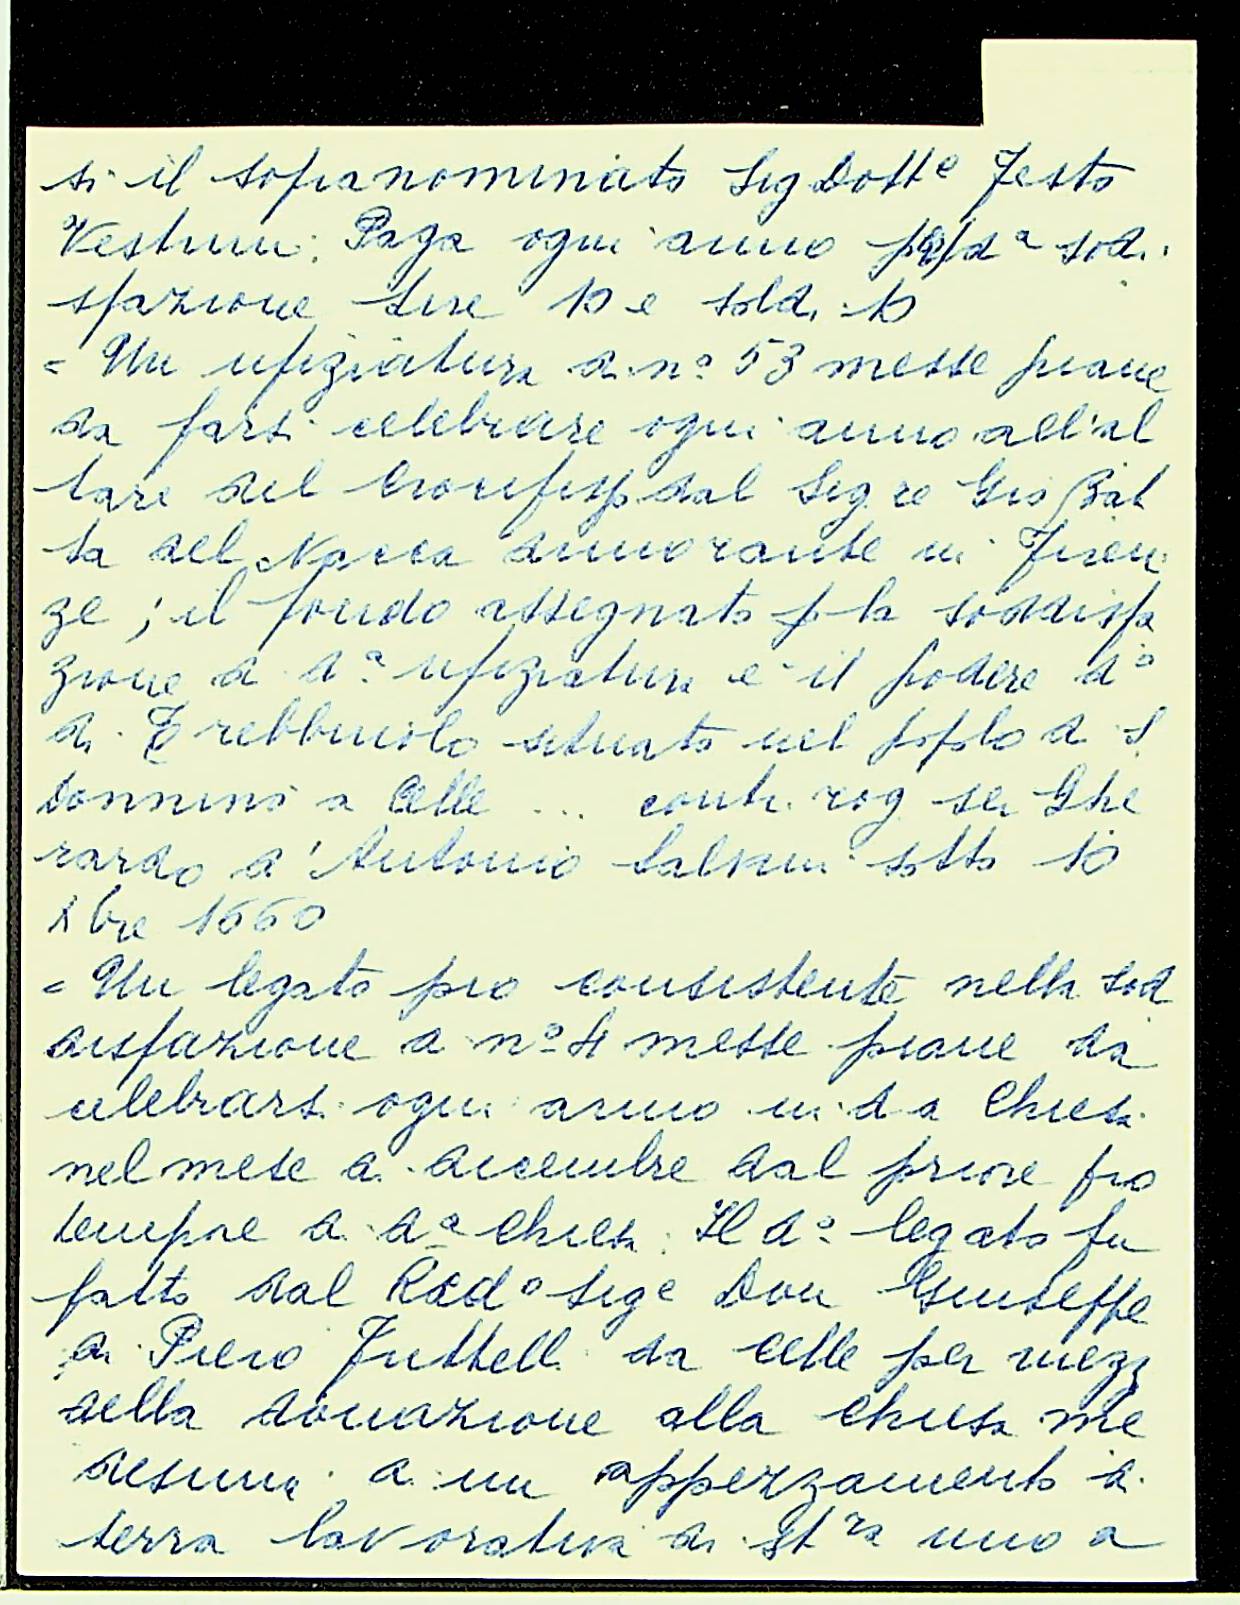 si il sopranominato Sig Dott.e Festo
Vestrini. Paga ogni anno p d.a sod.
sfazione Lire 10 e sold. 10
= Un ufiziatura di n.o 53 messe piane
da farsi celebrare ogni anno all'al
tare del Crocifisso dal Sig re Gio Bat
ta del Nacca dimorante in Firen
ze ; il fondo assegnato p la soddisfa
zione di d.a ufiziatura e il podere d.o
di Trebbiuolo situato nel popolo di S
Donnino a Celle ... contr. rog ser Ghe
rardo d'Antonio Salvini sotto 10
Xbre 1660
= Un legato pio consistente nella sod
disfazione di n.o 4 messe piane da
celebrarsi ogni anno in d a Chiesa
nel mese di dicembre dal priore pro
tempore di d.a Chiesa. Il d.o legato fu
fatto dal Red o Sig e Don Giuseppe
di Piero Fattelli da Celle per mezz
della donazione alla chiesa me
desima di un appezzamento di
terra lavorativa di st ra uno a